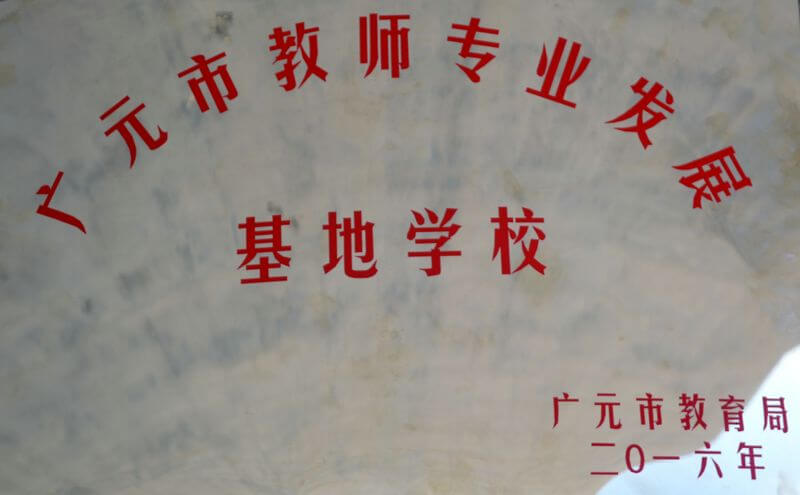 广元市教师专业发展
基地学校
广元市教育局
二〇一六年